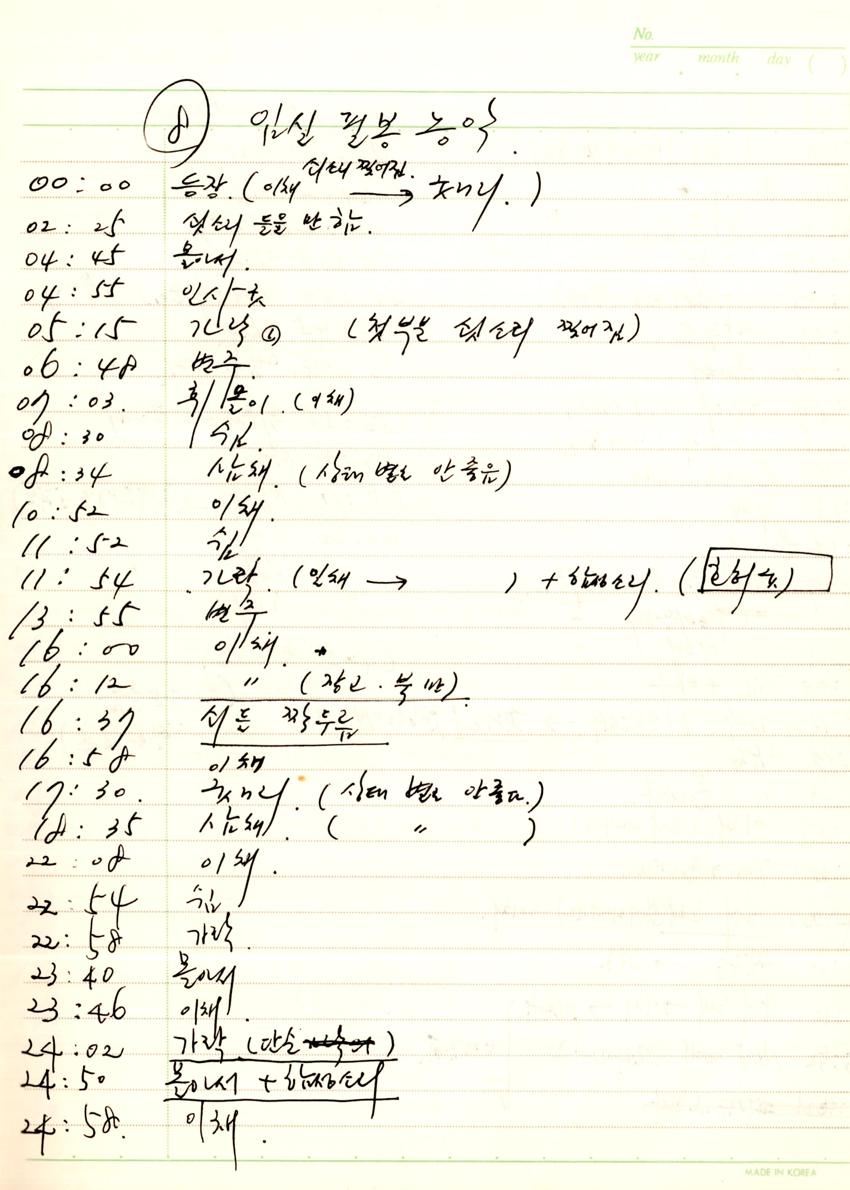 No.
year month day ( )
⑧ 임실 필봉 농악.
쇠소리 찢어짐.
00:00 등장. (이채 → 굿거리.)
02:25 쇳소리 들을 만 함.
04:45 몰아서.
04:55 인사굿
05:15 가락 (첫부분 쇳소리 찢어짐)
06:48 변주.
07:03. 휘몰이. (이채)
08:30 쉼.
08:34 삼채. (상태 별로 안 좋음)
10:52 이채.
11:52 쉼
11:54 가락. (일채 → ) + 함성소리. (
13:55 변주
16:00 이채.
16:12 〃 (장고·북만)
16:37 쇠든 짝두름
16:58 이채
17:30. 굿거리. (상태 별로 안좋다.)
18:35 삼채. ( 〃 )
22:08 이채.
22:54 쉼
22:58 가락.
23:40 몰아서
23:46 이채.
24:02 가락 (단순 )
24:50 몰아서 + 함성소리
24:58. 이채.
MADE IN KOREA